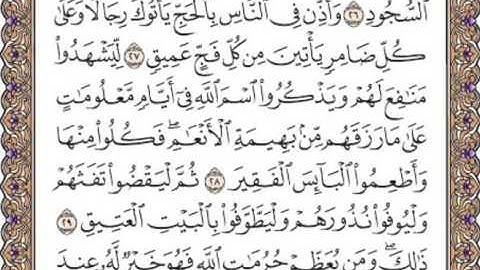 ٱلسُّجُودِ ۝٢٦ وَأَذِّن فِى ٱلنَّاسِ بِٱلْحَجِّ يَأْتُوكَ رِجَالًا وَعَلَىٰ
كُلِّ ضَامِرٍ يَأْتِينَ مِن كُلِّ فَجٍّ عَمِيقٍ ۝٢٧ لِّيَشْهَدُوا۟
مَنَـٰفِعَ لَهُمْ وَيَذْكُرُوا۟ ٱسْمَ ٱللَّهِ فِىٓ أَيَّامٍ مَّعْلُومَـٰتٍ
عَلَىٰ مَا رَزَقَهُم مِّنۢ بَهِيمَةِ ٱلْأَنْعَـٰمِ ۖ فَكُلُوا۟ مِنْهَا
وَأَطْعِمُوا۟ ٱلْبَآئِسَ ٱلْفَقِيرَ ۝٢٨ ثُمَّ لْيَقْضُوا۟ تَفَثَهُمْ
وَلْيُوفُوا۟ نُذُورَهُمْ وَلْيَطَّوَّفُوا۟ بِٱلْبَيْتِ ٱلْعَتِيقِ ۝٢٩
ذَٰلِكَ ۖ وَمَن يُعَظِّمْ حُرُمَـٰتِ ٱللَّهِ فَهُوَ خَيْرٌ لَّهُۥ عِندَ